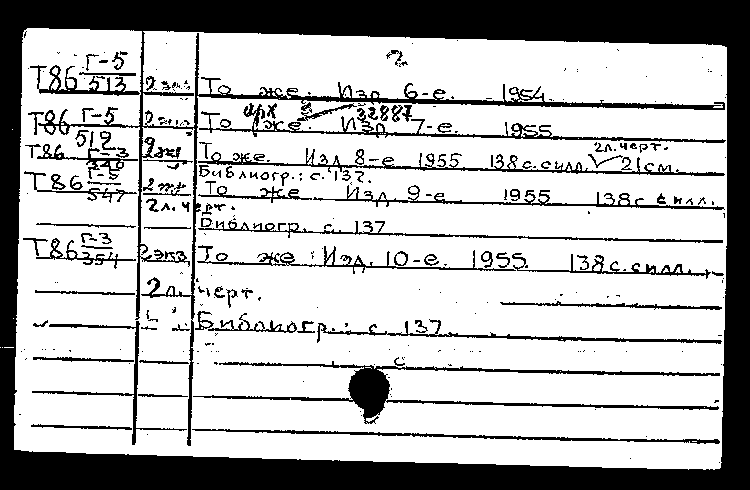 2
Т86 Г-5/513 2 экз То же. Изд 6-е. 1954
арх 32887
Т86 Г-5/512 2 экз То же. Изд. 7-е. 1955
2 л. черт.
Т86 Г-3/346 2 экз То же. Изд 8-е 1955 138 с. силл. 21 см.
Библиогр.: с. 137.
Т86 Г-5/547 2 экз То же Изд. 9-е 1955 138 с силл.
2 л. черт.
Библиогр. с. 137
Т86 Г-3/354 2 экз То же : Изд. 10-е. 1955. 138 с. силл.,
2 л. черт.
Библиогр.: с. 137.
с